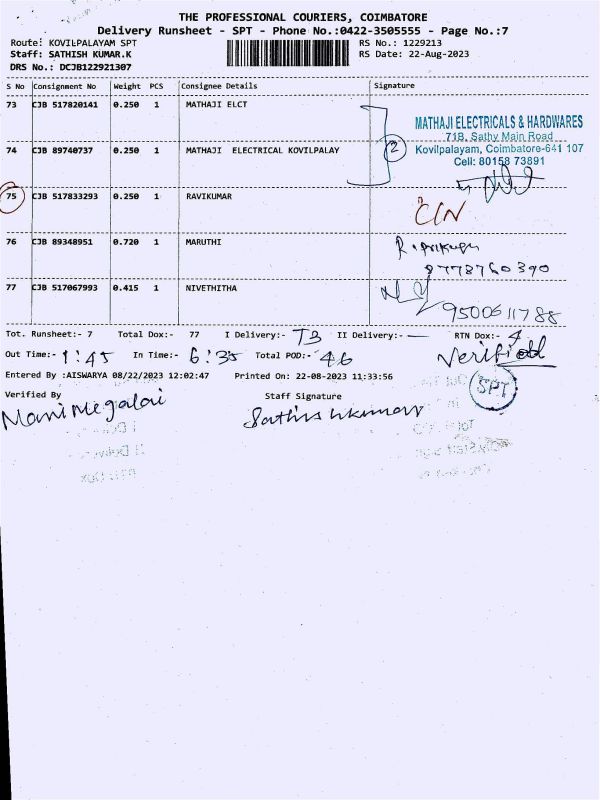 THE PROFESSIONAL COURIERS, COIMBATORE
Delivery Runsheet - SPT - Phone No.:0422-3505555 - Page No.:7
Route: KOVILPALAYAM SPT
RS No.: 1229213
Staff: SATHISH KUMAR.K
RS Date: 22-Aug-2023
DRS No.: DCJB122921307
S No Consignment No Weight PCS Consignee Details Signature
73 CJB 517820141 0.250 1 MATHAJI ELCT
MATHAJI ELECTRICALS & HARDWARES
71B, Sathy Main Road
74 CJB 89740737 0.250 1 MATHAJI ELECTRICAL KOVILPALAY 2 Kovilpalayam, Coimbatore-641 107
Cell: 80158 73891
75 CJB 517833293 0.250 1 RAVIKUMAR
C/N
76 CJB 89348951 0.720 1 MARUTHI
77 CJB 517067993 0.415 1 NIVETHITHA
9500611788
Tot. Runsheet:- 7 Total Dox:- 77 I Delivery:- 73 II Delivery:- — RTN Dox:- 4
Out Time:- 1:45 In Time:- 6:35 Total POD:- 46 Verified
Entered By :AISWARYA 08/22/2023 12:02:47 Printed On: 22-08-2023 11:33:56
SPT
Verified By Staff Signature
Manimegalai Sathishkumar